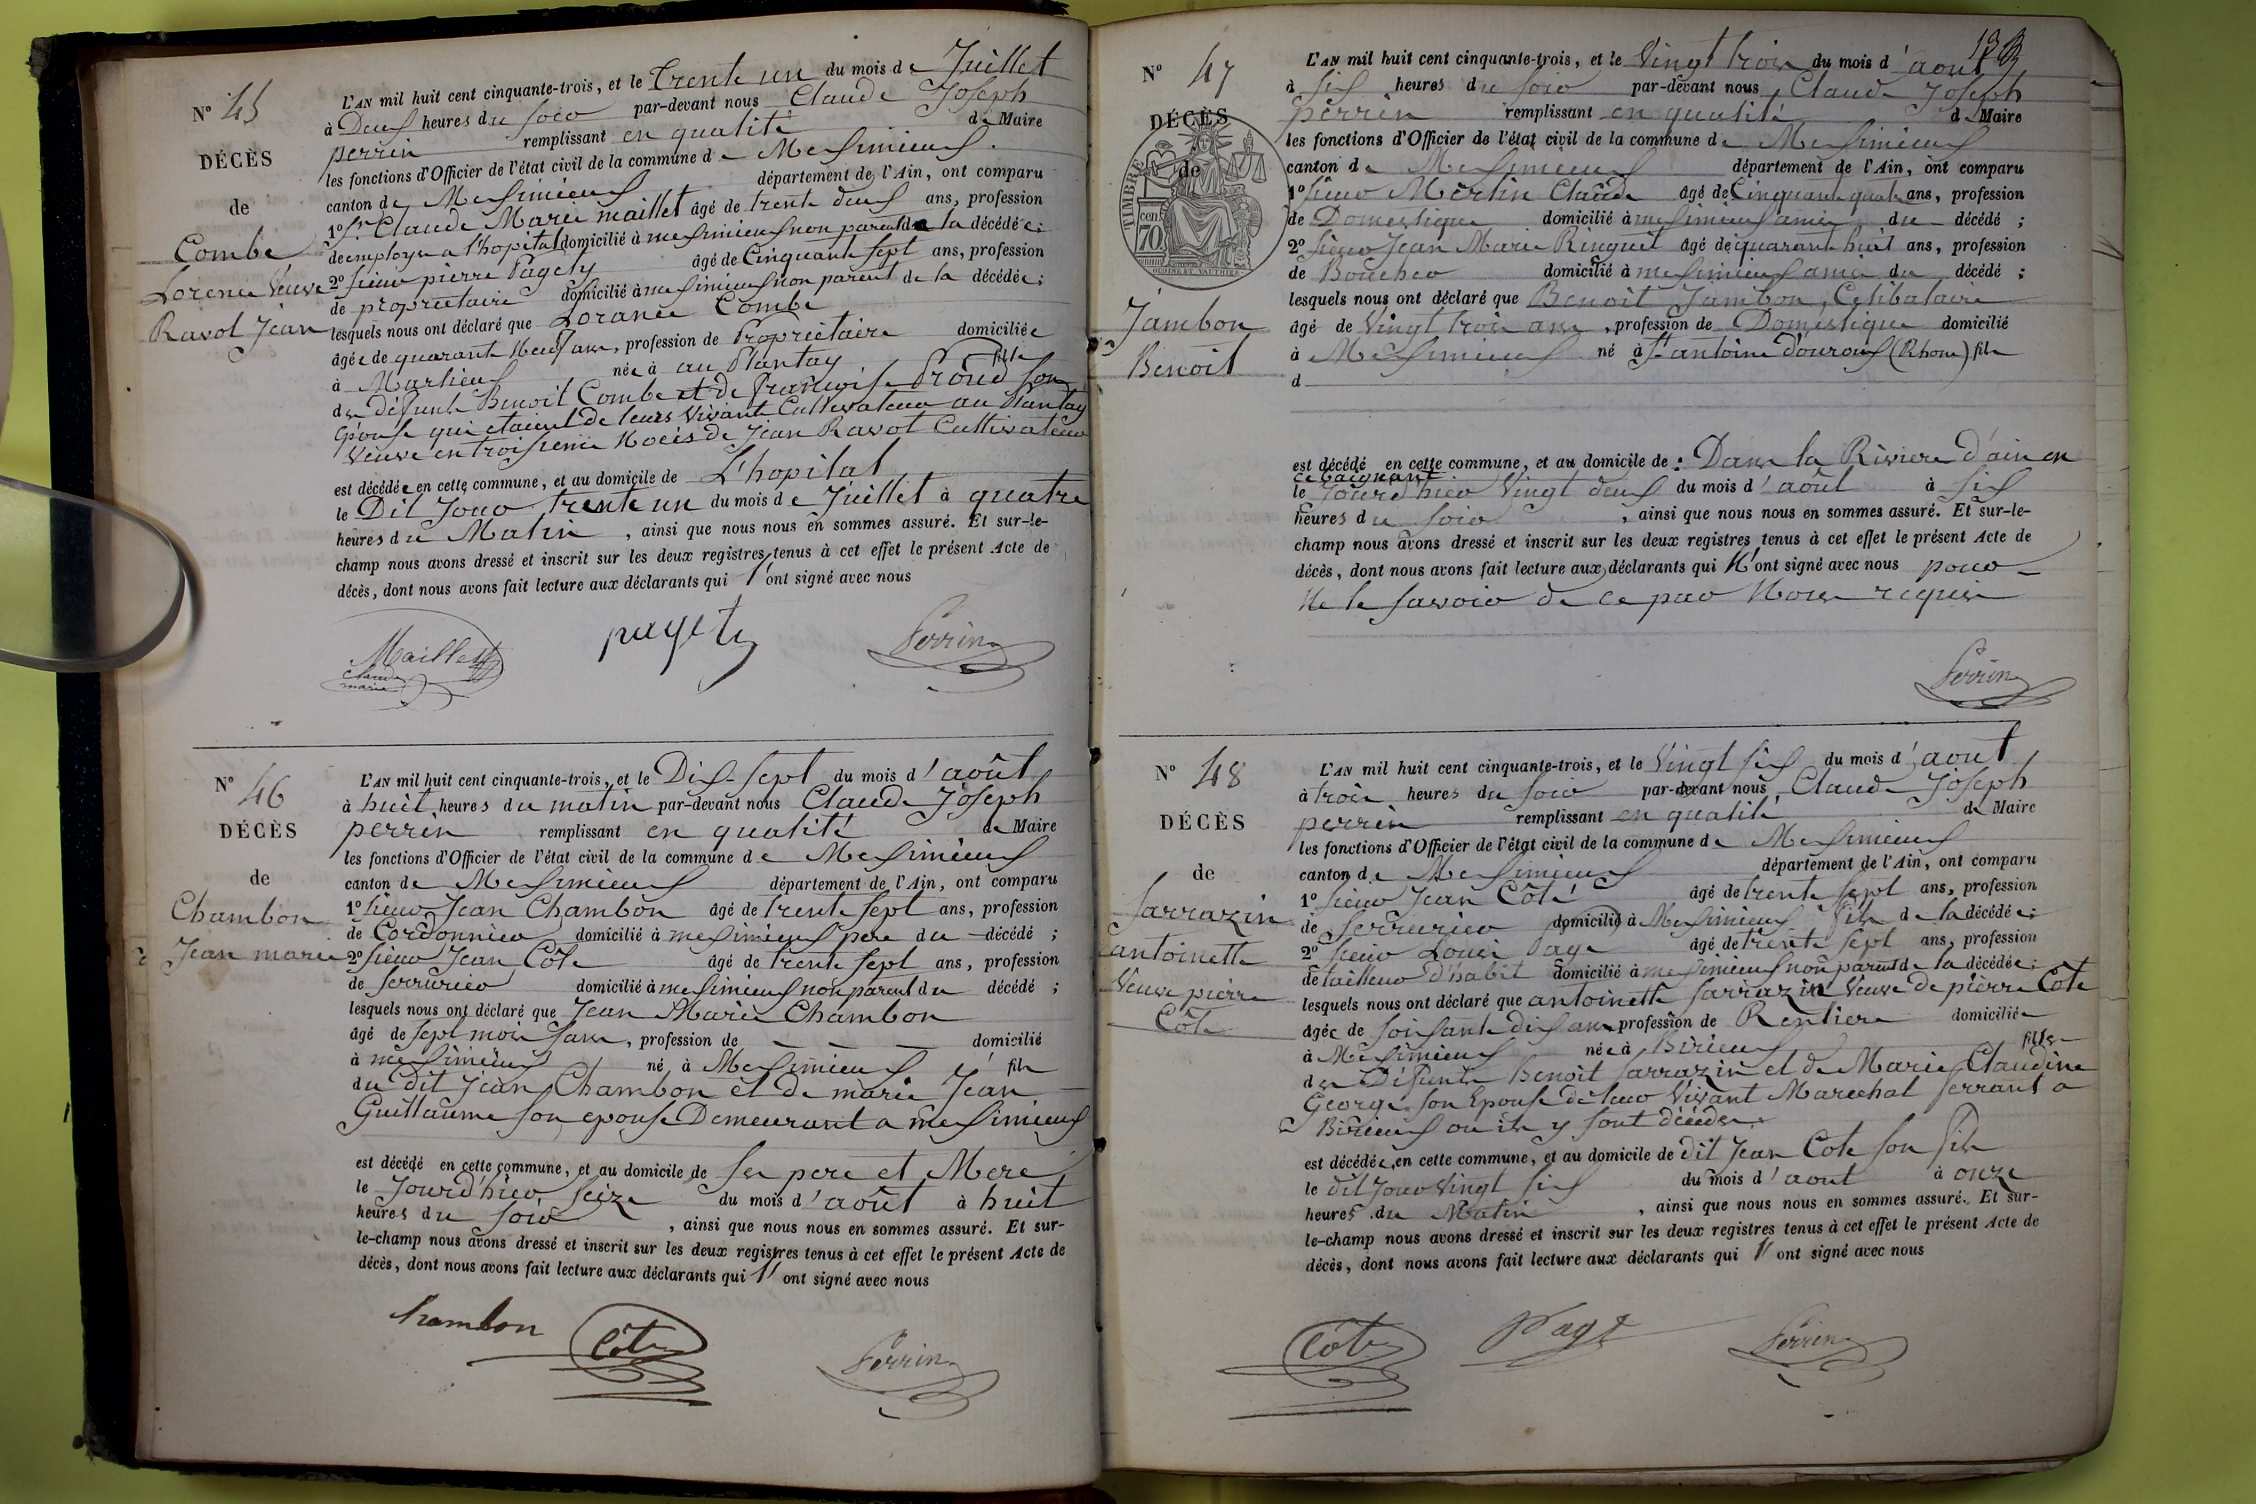 N° 45
DÉCÈS
de
Combe
Lorence Veuve
Ravot Jean
L'AN mil huit cent cinquante-trois, et le trente un du mois de Juillet
à Deux heures du soir par-devant nous Claude Joseph
perrin remplissant en qualité de Maire
les fonctions d'Officier de l'état civil de la commune de Meximieux.
canton de Meximieux département de l'Ain, ont comparu
1° Sr Claude Marie maillet âgé de trente deux ans, profession
de employe a l'hopital domicilié à meximieux non parent de la décédée;
2° sieur pierre Pagety âgé de Cinquante sept ans, profession
de proprietaire domicilié à meximieux non parent de la décédée;
lesquels nous ont déclaré que Lorance Combe
âgée de quarante Neuf ans, profession de Propriétaire domiciliée
à Marlieux née à au Plantay fille
de défunts Benoit Combe et de françoise Proud son
Epouse qui etaient de leurs Vivant Cultivateur au Plantay
Veuve en troisieme Noces de Jean Ravot Cultivateur
est décédée en cette commune, et au domicile de L'hopital
le Dit Jour trente un du mois de Juillet à quatre
heures du Matin, ainsi que nous nous en sommes assuré. Et sur-le-
champ nous avons dressé et inscrit sur les deux registres tenus à cet effet le présent Acte de
décès, dont nous avons fait lecture aux déclarants qui l'ont signé avec nous
Maillet
Claude
marie
pagety
Perrin
N° 46
DÉCÈS
de
Chambon
Jean marie
L'AN mil huit cent cinquante-trois, et le Dix-sept du mois d'août
à huit heures du matin par-devant nous Claude Joseph
perrin remplissant en qualité de Maire
les fonctions d'Officier de l'état civil de la commune de Meximieux
canton de Meximieux département de l'Ain, ont comparu
1° sieur Jean Chambon âgé de trente sept ans, profession
de Cordonnier domicilié à meximieux pere du décédé;
2° sieur Jean Côte âgé de trente sept ans, profession
de serrurier domicilié à meximieux non parent du décédé;
lesquels nous ont déclaré que Jean Marie Chambon
âgé de sept mois sans, profession de — — — domicilié
à meximieux né à Meximieux fils
du dit Jean Chambon et de marie Jean
Guillaume son epouse Demeurant a meximieux
est décédé en cette commune, et au domicile de ses pere et Mere
le Jourd'hier seize du mois d'août à huit
heures du soir, ainsi que nous nous en sommes assuré. Et sur-
le-champ nous avons dressé et inscrit sur les deux registres tenus à cet effet le présent Acte de
décès, dont nous avons fait lecture aux déclarants qui l'ont signé avec nous
Chambon
Côte
Perrin
N° 47
DÉCÈS
de
TIMBRE
cen
70
Jambon
Benoit
L'AN mil huit cent cinquante-trois, et le Vingt trois du mois d'aout
à six heures du soir par-devant nous Claude Joseph
perrin remplissant en qualité de Maire
les fonctions d'Officier de l'état civil de la commune de Meximieux
canton de Meximieux département de l'Ain, ont comparu
1° sieur Merlin Claude âgé de Cinquante quatre ans, profession
de Domestique domicilié à meximieux amie du décédé;
2° sieur Jean Marie Rinquet âgé de quarante huit ans, profession
de Boucher domicilié à meximieux amis du décédé;
lesquels nous ont déclaré que Benoit Jambon, Celibataire
âgé de Vingt trois ans, profession de Domestique domicilié
à Meximieux né à St antoine d'ouroux (Rhone) fils
d
est décédé en cette commune, et au domicile de: Dans la Riviere d'ain en
ce baignant
le Jourd'hier Vingt deux du mois d'août à six
heures du soir, ainsi que nous nous en sommes assuré. Et sur-le-
champ nous avons dressé et inscrit sur les deux registres tenus à cet effet le présent Acte de
décès, dont nous avons fait lecture aux déclarants qui N'ont signé avec nous pour
Ne le savoir de ce par Nous requis
Perrin
N° 48
DÉCÈS
de
Sarrazin
antoinette
Veuve pierre
Côte
L'AN mil huit cent cinquante-trois, et le Vingt six du mois d'aout
à trois heures du soir par-devant nous Claude Joseph
perrin remplissant en qualité de Maire
les fonctions d'Officier de l'état civil de la commune de Meximieux
canton de Meximieux département de l'Ain, ont comparu
1° sieur Jean Côte âgé de trente sept ans, profession
de Serrurier domicilié à Meximieux fils de la décédée;
2° sieur Louis Page âgé de trente sept ans, profession
de tailleur d'habit domicilié à meximieux non parent de la décédée;
lesquels nous ont déclaré que antoinette Sarrazin Veuve de pierre Côte
âgée de soixante dix ans profession de Rentiere domiciliée
à Meximieux née à Birieux fille
de Défunts Benoit Sarrazin et de Marie Claudine
George son Epouse de leur Vivant Marechal ferrant a
Birieux ou ils y sont décédés
est décédée en cette commune, et au domicile de dit Jean Cote son fils
le dit Jour Vingt six du mois d'aout à onze
heures du Matin, ainsi que nous nous en sommes assuré. Et sur-
le-champ nous avons dressé et inscrit sur les deux registres tenus à cet effet le présent Acte de
décès, dont nous avons fait lecture aux déclarants qui l'ont signé avec nous
Côte
Page
Perrin